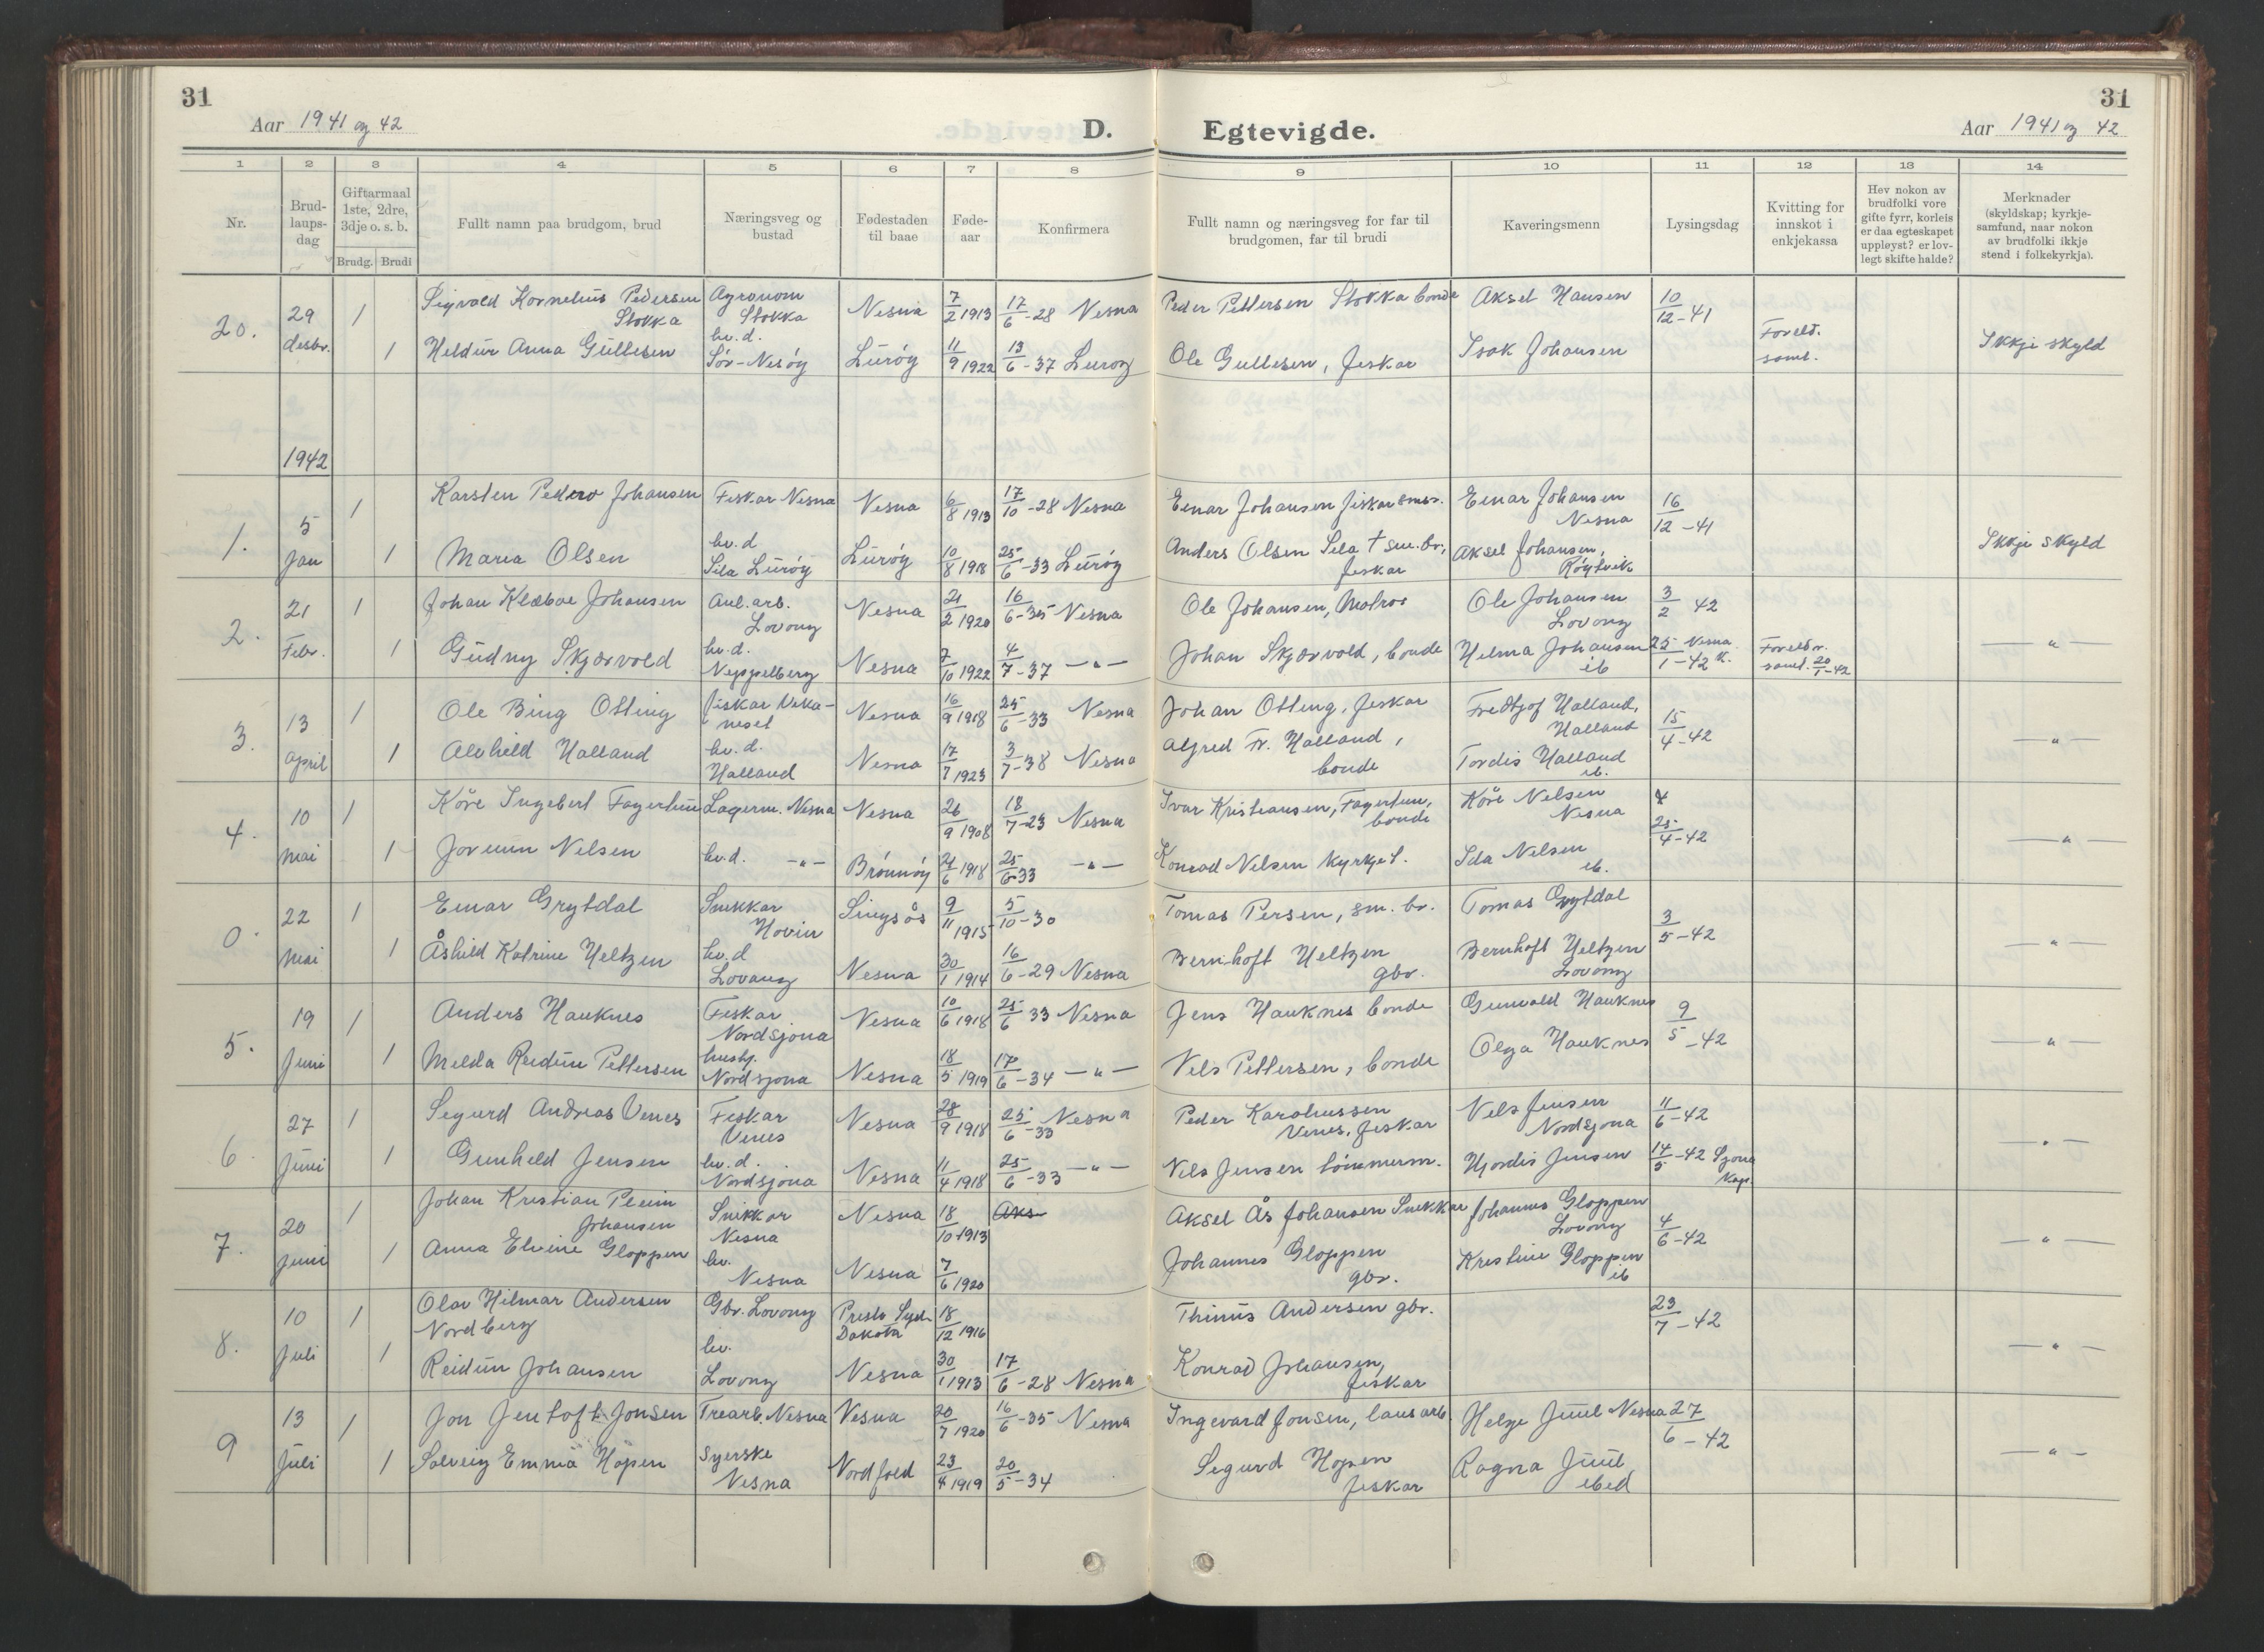 31
31
Aar 1941 og 42
D. Egtevigde.
Aar 1941 og 42
1 2 3 4 5 6 7 8 9 10 11 12 13 14
Nr.
Brud-
laups-
dag
Giftarmaal
1ste, 2dre,
3dje o. s. b.
Brudg. Brudi
Fullt namn paa brudgom, brud
Næringsveg og
bustad
Fødestaden
til baae
Føde-
aar
Konfirmera
Fullt namn og næringsveg for far til
brudgomen, far til brudi
Kaveringsmenn
Lysingsdag
Kvitting for
innskot i
enkjekassa
Hev nokon av
brudfolki vore
gifte fyrr, korleis
er daa egteskapet
uppløyst? er lov-
legt skifte halde?
Merknader
(skyldskap; kyrkje-
samfund, naar nokon
av brudfolki ikkje
stend i folkekyrkja).
20. 29 desbr. 1 Sigvald Kornelius Pedersen Stokka Agronom Stokka Nesna 7/2 1913 17/6-28 Nesna Peder Pettersen Stokka bonde Aksel Hansen 10/12-41
1 Heldur Anna Gullesen hv.d. Sør-Nesøy Lurøy 11/9 1922 13/6-37 Lurøy Ole Gullesen, fiskar Isak Johansen Foreld. saml. Ikkje skyld
1942
1. 5 Jan 1 Karsten Pedero Johansen Fiskar Nesna Nesna 6/8 1913 17/10-28 Nesna Einar Johansen fiskar smbr. Einar Johansen Nesna 16/12-41
1 Maria Olsen hv.d Sila Lurøy Lurøy 10/8 1918 25/6-33 Lurøy Anders Olsen Sila † sm.br, fiskar Aksel Johansen, Røytvik Ikkje skyld
2. 21 Febr. 1 Johan Klæboe Johansen Anl.arb. Lovong Nesna 21/2 1920 16/6-35 Nesna Ole Johansen, Matros Ole Johansen Lovong 3/2 42
1 Gudny Skjærvold hv.d. Neppelberg Nesna 7/10 1922 4/7-37 -"- Johan Skjærvold, bonde Helma Johansen ib 25/1-42 Nesna K. Foreldr. saml. 20/1-42 -"-
3. 13 april 1 Ole Bing Otting fiskar Vikaneset Nesna 16/9 1918 25/6-33 Nesna Johan Otting, fiskar Fredtjof Halland, Halland 15/4-42
1 Alvhild Halland hv.d. Halland Nesna 17/7 1923 3/7-38 Nesna Alfred Fr. Halland, bonde Tordis Halland ib. -"-
4. 10 mai 1 Kåre Ingebert Fagertun Lagerm. Nesna Nesna 26/9 1908 18/7-23 Nesna Ivar Kristiansen, Fagertun, bonde Kåre Nilsen Nesna 25/4-42
1 Jorunn Nilsen hv.d. -"- Brønnøy 21/6 1918 25/6-33 -"- Konrad Nilsen kyrkjet. Ida Nilsen ib. -"-
0. 22 mai 1 Einar Grytdal Snikkar Hovin Singsås 9/11 1915 5/10-30 Tomas Persen, sm. br. Tomas Grytdal 3/5-42
1 Åshild Katrine Heltzen hv.d Lovong Nesna 30/1 1914 16/6-29 Nesna Bernhoft Heltzen gbr. Bernhoft Heltzen Lovong -"-
5. 19 Juni 1 Anders Hauknes Fiskar Nordsjona Nesna 10/6 1918 25/6 33 Nesna Jens Hauknes bonde Gunvald Hauknes 9/5-42
1 Melda Reidun Pettersen hushj. Nordsjona Nesna 18/5 1919 17/6-34 -"- Nils Pettersen, bonde Olga Hauknes -"-
6. 27 Juni 1 Sigurd Andreas Venes Fiskar Venes Nesna 28/9 1918 25/6-33 Nesna Peder Karoliussen Venes, fiskar Nils Jensen Nordsjona 11/6-42
1 Gunhild Jensen hv.d. Nordsjona Nesna 11/4 1918 25/6-33 -"- Nils Jensen tømmerm. Hjordis Jensen 14/5-42 Sjona kap. -"-
7. 20 Juni 1 Johan Kristian Pleim Johansen Snikkar Nesna Nesna 18/10 1913 Aks Aksel Ås Johansen Snikkar Johannes Gloppen Lovong 4/6-42
1 Anna Elvine Gloppen hv. Nesna Nesna 7/6 1920 Johannes Gloppen gbr. Kristine Gloppen ib -"-
8. 10 Juli 1 Olav Hilmar Andersen Nordberg Gbr. Lovong Presto Syd-Dakota 18/12 1916 Thinus Andersen gbr. 23/7-42
1 Reidun Johansen hv. Lovong Nesna 30/1 1913 17/6-28 Nesna Konrad Johansen, fiskar -"-
9 13 Juli 1 Jon Jentoft Jonsen Trearb. Nesna Nesna 20/7 1920 16/6-35 Nesna Ingevard Jonsen, lausarb. Helge Juul Nesna 27/6-42
1 Solveig Emma Hopen Syerske Nesna Nordfold 23/4 1919 20/5-34 Sigurd Hopen fiskar Ragna Juul ibid -"-